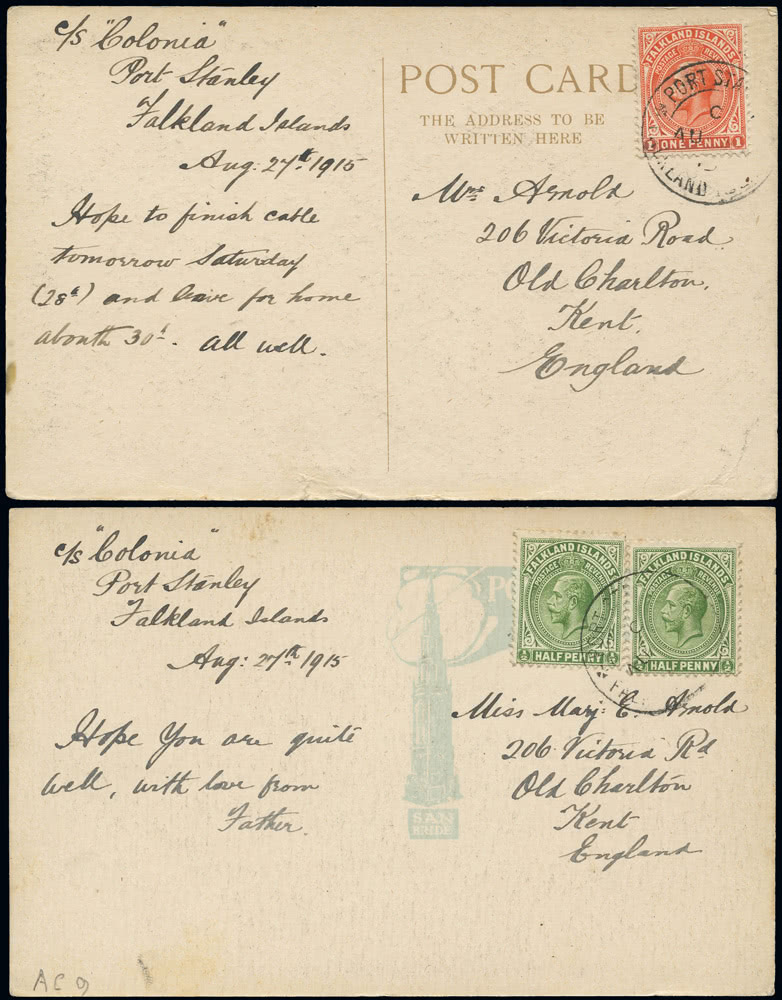 c/s "Colonia"
Port Stanley
Falkland Islands
Aug: 27th 1915
Hope to finish cable
tomorrow Saturday
(28th) and leave for home
about 30th. All well.
POST CARD
THE ADDRESS TO BE
WRITTEN HERE
FALKLAND ISLANDS
POSTAGE REVENUE
1 ONE PENNY 1
PORT STA
AU
Mrs Arnold
206 Victoria Road.
Old Charlton.
Kent.
England
c/s "Colonia"
Port Stanley
Falkland Islands
Aug: 27th 1915
Hope You are quite
well, with love from
Father.
FALKLAND ISLANDS
POSTAGE REVENUE
½ HALF PENNY ½
FALKLAND ISLANDS
POSTAGE REVENUE
½ HALF PENNY ½
PORT
Miss Marj: C. Arnold
206 Victoria Rd
Old Charlton
Kent
England
SAN
BRIDE